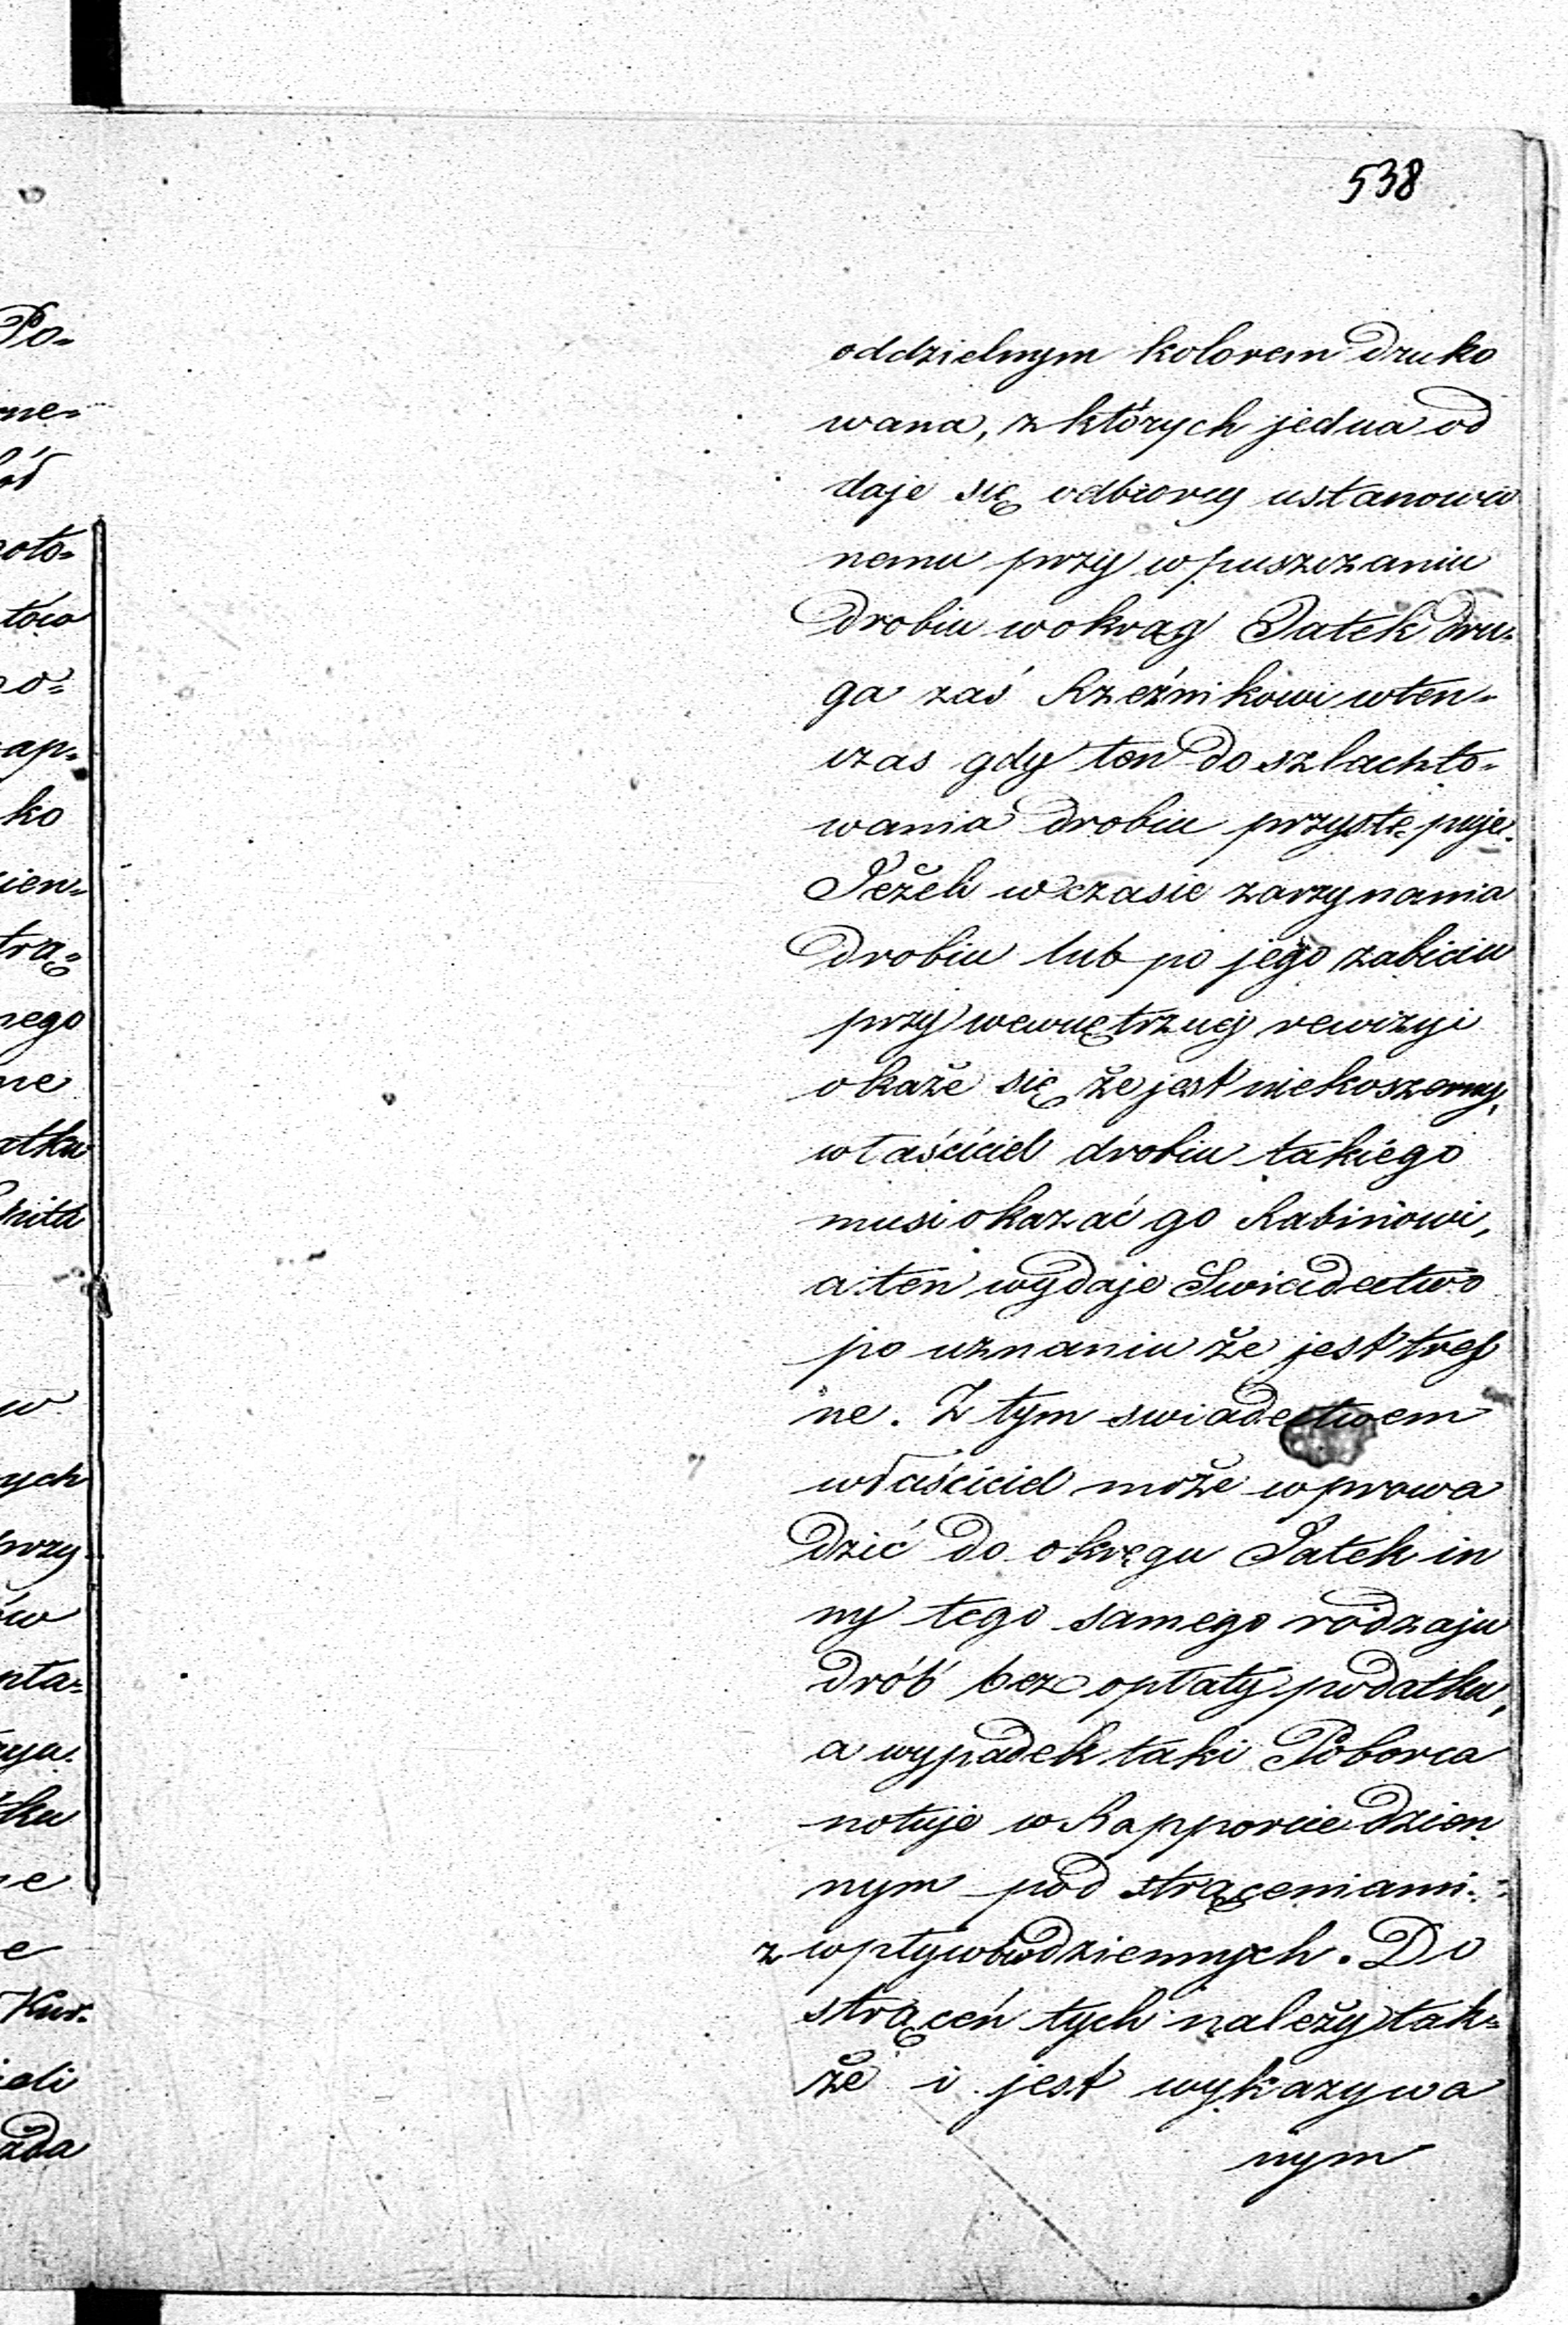 538
oddzielnym kolorem druko
wana, z których jedna od
daje się odbiorcy ustanowio
nemu przy wpuszczaniu
drobiu w okrąg Jatek dru-
ga zaś Rzeźnikowi wten-
czas gdy ten do szlachto-
wania drobiu przystępuje.
Jeżeli w czasie zarzynania
drobiu lub po jego zabiciu
przy wewnętrznej rewizyi
okaże się że jest niekoszerny,
właściciel drobiu takiego
musi okazać go Rabinowi,
a ten wydaje Swiadectwo
po uznaniu że jest tref
ne. Z tym swiadectwem
właściciel może wprowa
dzić do okręgu Jatek in
ny tego samego rodzaju
drób bez opłaty podatku,
a wypadek taki Poborca
notuje w Rapporcie dzien
nym pod strąceniami
z wpływów dziennych. Do
strąceń tych należy tak-
że i jest wykazywa
nym
Po-
me-
oto-
ap-
ko
ien-
trą-
nego
ne
atku
w
ych
przy
ów
nta-
ku
e
e
Kur-
eli
żda